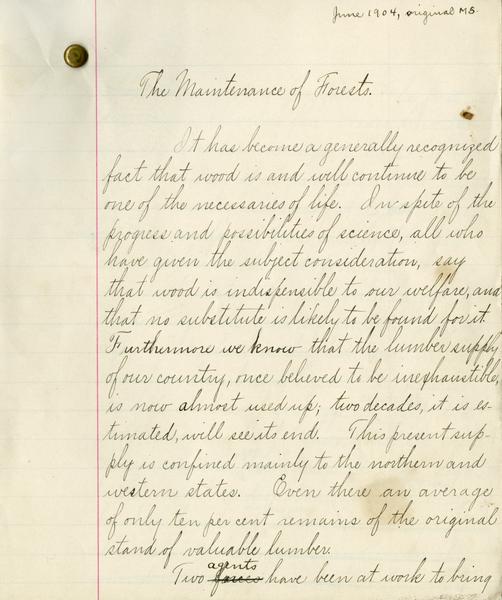 June 1904, original MS.
The Maintenance of Forests.
It has become a generally recognized
fact that wood is and will continue to be
one of the necessaries of life. In spite of the
progress and possibilities of science, all who
have given the subject consideration, say
that wood is indispensible to our welfare, and
that no substitute is likely to be found for it
Furthermore we know that the lumber supply
of our country, once believed to be inexhaustible,
is now almost used up; two decades, it is es-
timated, will see its end. This present sup-
ply is confined mainly to the northern and
western states. Even there an average
of only ten per cent remains of the original
stand of valuable lumber.
agents
Two forces have been at work to bring